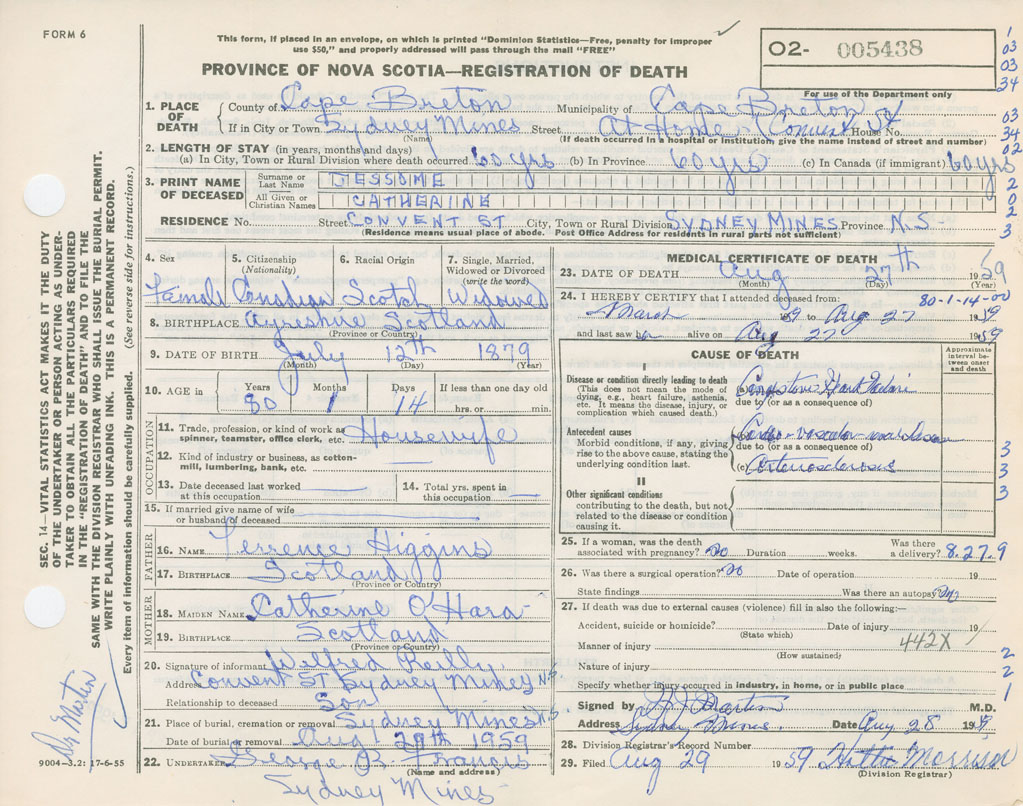 FORM 6
This form, if placed in an envelope, on which is printed "Dominion Statistics—Free, penalty for improper
use $50," and properly addressed will pass through the mail "FREE"
O2- 005438
For use of the Department only
PROVINCE OF NOVA SCOTIA—REGISTRATION OF DEATH
1 03 03 34
1. PLACE OF DEATH
County of Cape Breton Municipality of Cape Breton 03
If in City or Town Sydney Mines Street At Home (Convent St House No. 34
(Name) (If death occurred in a hospital or institution, give the name instead of street and number)
2. LENGTH OF STAY (in years, months and days) 02
(a) In City, Town or Rural Division where death occurred 60 yrs (b) In Province 60 yrs (c) In Canada (if immigrant) 60 yrs
3. PRINT NAME OF DECEASED
Surname or Last Name JESSOME 2
All Given or Christian Names CATHERINE 0
2
RESIDENCE No. Street CONVENT ST City, Town or Rural Division SYDNEY MINES Province N.S- 3
(Residence means usual place of abode. Post Office Address for residents in rural parts not sufficient)
4. Sex Female
5. Citizenship (Nationality) Canadian
6. Racial Origin Scotch
7. Single, Married, Widowed or Divorced (write the word) Widowed
8. BIRTHPLACE Ayreshire Scotland
(Province or Country)
9. DATE OF BIRTH July 12th 1879
(Month) (Day) (Year)
10. AGE in Years 80 Months 1 Days 14 If less than one day old hrs. or min.
OCCUPATION
11. Trade, profession, or kind of work as spinner, teamster, office clerk, etc. Housewife
12. Kind of industry or business, as cotton-mill, lumbering, bank, etc.
13. Date deceased last worked at this occupation
14. Total yrs. spent in this occupation
15. If married give name of wife or husband of deceased
FATHER
16. NAME Terrence Higgins
17. BIRTHPLACE Scotland
(Province or Country)
MOTHER
18. MAIDEN NAME Catherine O'Hara
19. BIRTHPLACE Scotland
(Province or Country)
20. Signature of informant Wilfred Reilly
Address Convent St Sydney Mines NS
Relationship to deceased Son
21. Place of burial, cremation or removal Sydney Mines N.S.
Date of burial or removal Aug 29th 1959
22. UNDERTAKER George B. Francis
(Name and address)
Sydney Mines
MEDICAL CERTIFICATE OF DEATH
23. DATE OF DEATH Aug 27th 1959
(Month) (Day) (Year)
24. I HEREBY CERTIFY that I attended deceased from: 80-1-14-00
March 1959 to Aug 27 1959
and last saw h alive on Aug 27 1959
CAUSE OF DEATH
Approximate interval between onset and death
I
Disease or condition directly leading to death
(This does not mean the mode of dying, e.g., heart failure, asthenia, etc. It means the disease, injury, or complication which caused death.)
(a) Congestive Heart Failure
due to (or as a consequence of)
Antecedent causes
Morbid conditions, if any, giving rise to the above cause, stating the underlying condition last.
(b) Cardio-vascular
due to (or as a consequence of)
(c) Arteriosclerosis
3
3
3
II
Other significant conditions
contributing to the death, but not related to the disease or condition causing it.
25. If a woman, was the death associated with pregnancy? no Duration weeks. Was there a delivery? 8.27.9
26. Was there a surgical operation? no Date of operation 19
State findings Was there an autopsy no
27. If death was due to external causes (violence) fill in also the following:—
Accident, suicide or homicide? Date of injury 19
(State which)
Manner of injury 442X 2
(How sustained)
Nature of injury 2
Specify whether injury occurred in industry, in home, or in public place 1
Signed by Martin M.D.
Address Sydney Mines. Date Aug 28 1959
28. Division Registrar's Record Number
29. Filed Aug 29 1959 Morrison
(Division Registrar)
SEC. 14—VITAL STATISTICS ACT MAKES IT THE DUTY
OF THE UNDERTAKER OR PERSON ACTING AS UNDER-
TAKER TO OBTAIN ALL THE PARTICULARS REQUIRED
IN THE "REGISTRATION OF DEATH" AND TO FILE THE
SAME WITH THE DIVISION REGISTRAR WHO SHALL ISSUE THE BURIAL PERMIT.
WRITE PLAINLY WITH UNFADING INK. THIS IS A PERMANENT RECORD.
Every item of information should be carefully supplied. (See reverse side for instructions.)
Dr Martin
9004-3.2: 17-6-55